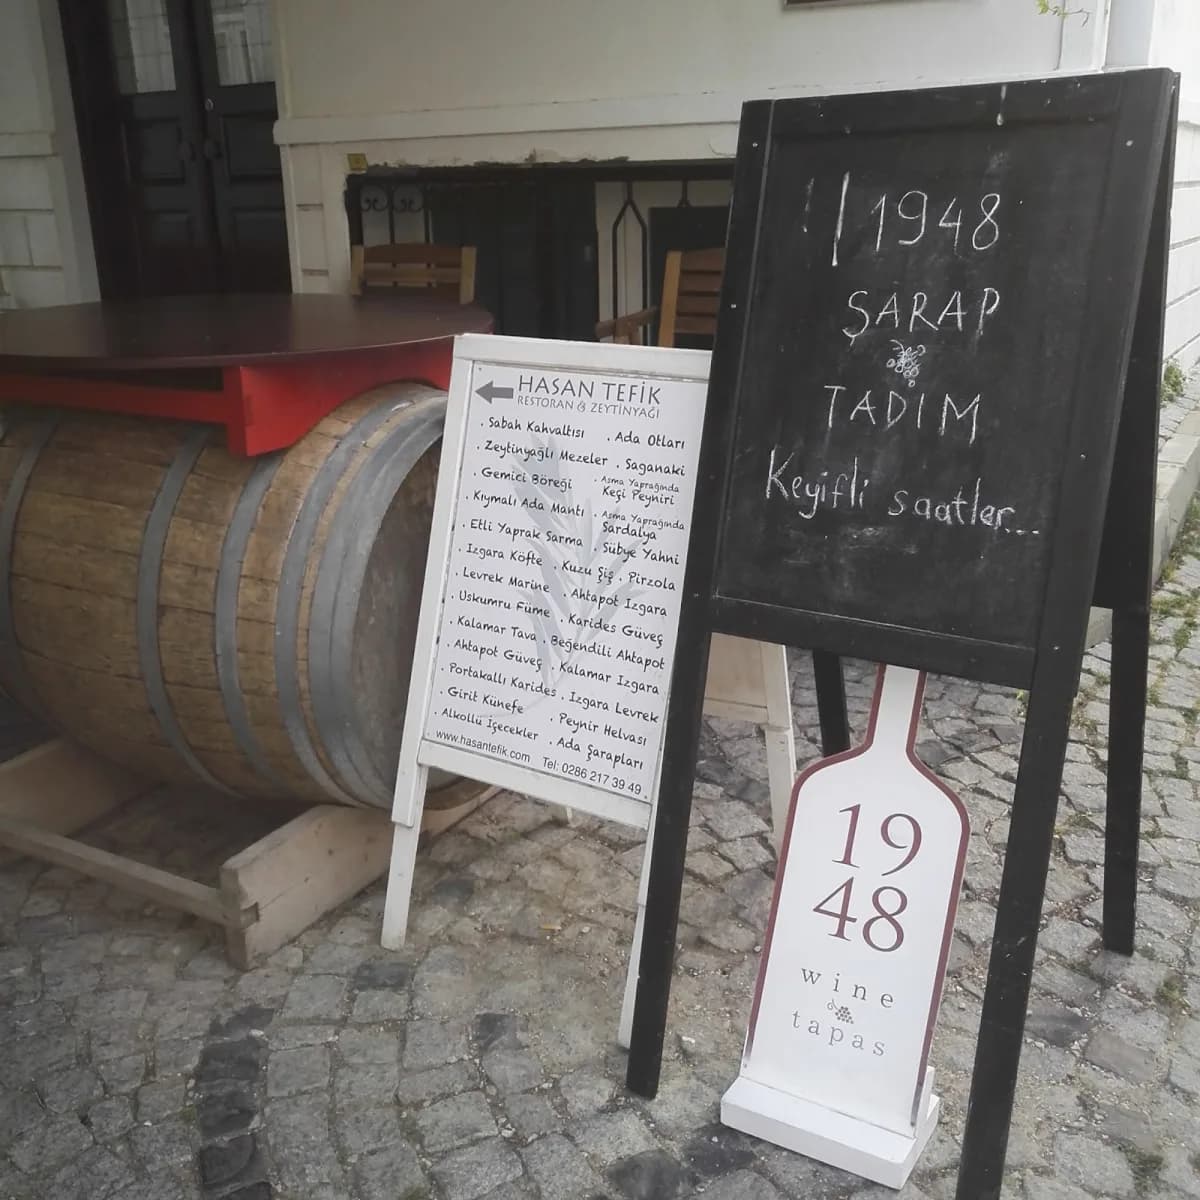 HASAN TEFİK
RESTORAN & ZEYTİNYAĞI
. Sabah Kahvaltısı . Ada Otları
. Zeytinyağlı Mezeler . Saganaki
. Gemici Böreği . Asma Yaprağında
Keçi Peyniri
. Kıymalı Ada Mantı . Asma Yaprağında
Sardalya
. Etli Yaprak Sarma . Sübye Yahni
. Izgara Köfte . Kuzu Şiş . Pirzola
. Levrek Marine . Ahtapot Izgara
. Uskumru Füme . Karides Güveç
. Kalamar Tava . Beğendili Ahtapot
. Ahtapot Güveç . Kalamar Izgara
. Portakallı Karides . Izgara Levrek
. Girit Künefe . Peynir Helvası
. Alkollü İçecekler . Ada Şarapları
www.hasantefik.com Tel: 0286 217 39 49
1948
ŞARAP
TADIM
Keyifli saatler...
19
48
wine
tapas